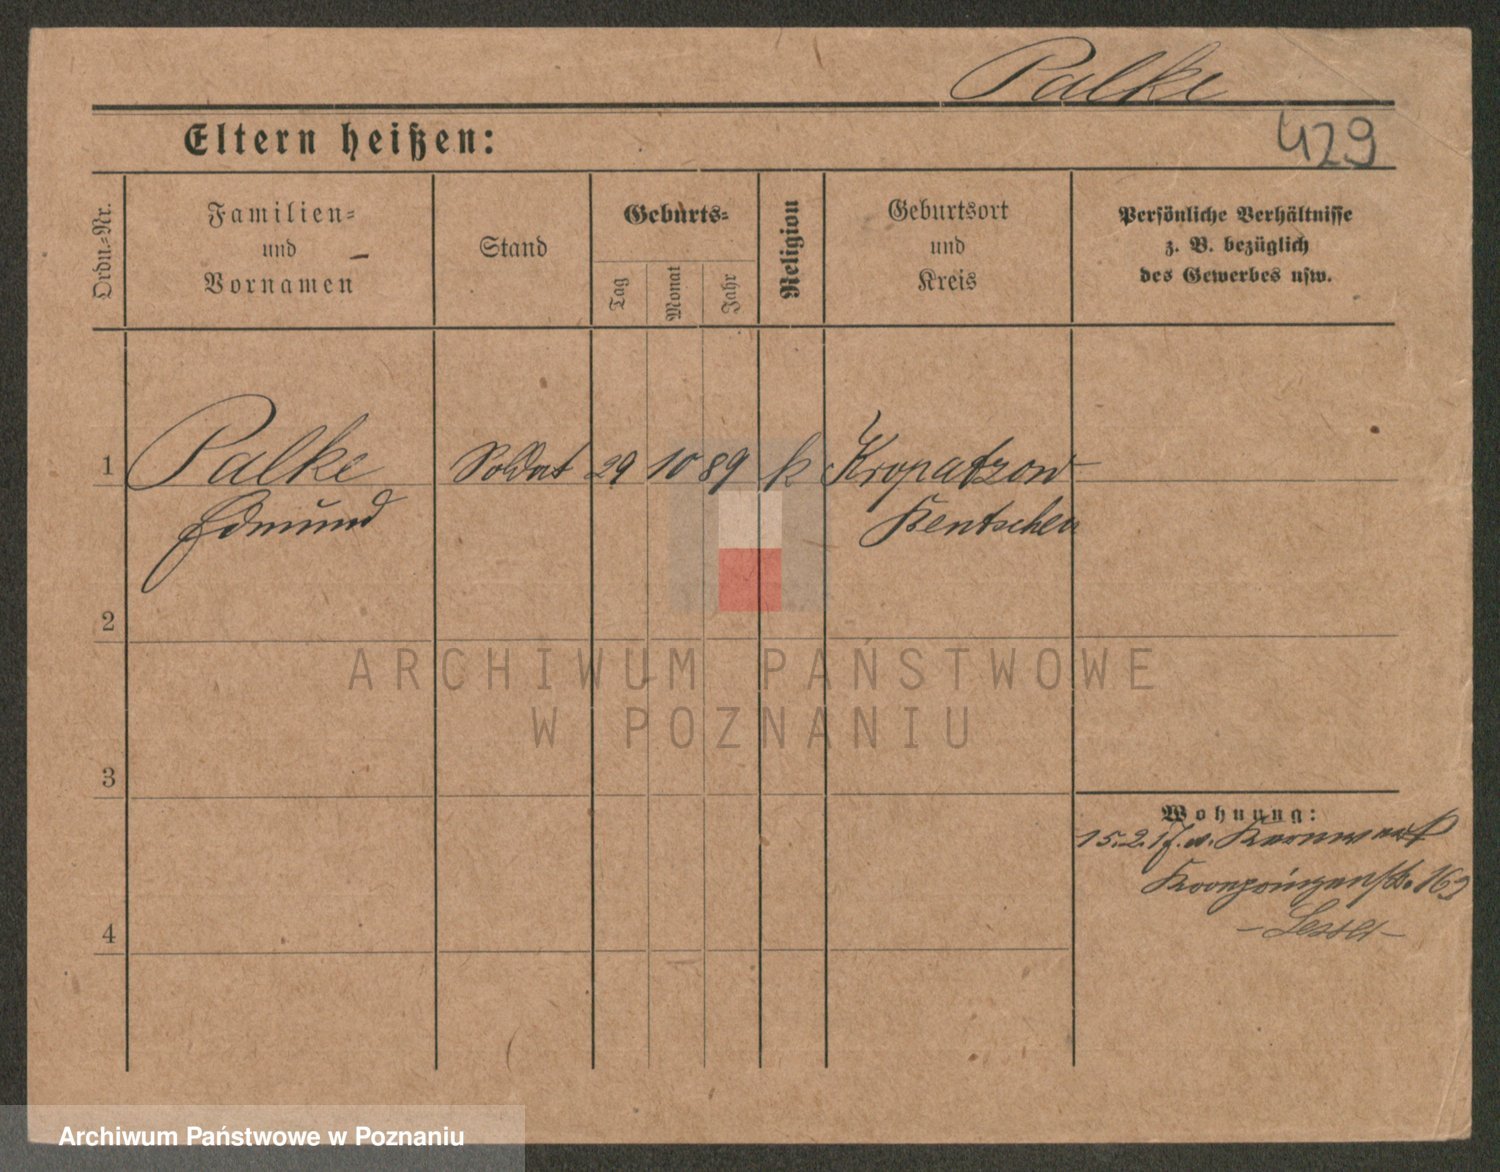 Palke
Eltern heißen:
429
Ordn.-Nr.
Familien-
und
Vornamen
Stand
Geburts-
Tag
Monat
Jahr
Religion
Geburtsort
und
Kreis
Persönliche Verhältnisse
z. B. bezüglich
des Gewerbes usw.
1 Palke Soldat 29 10 89 k Kropatzow
Edmund Bentschen
2
ARCHIWUM PAŃSTWOWE
W POZNANIU
3
Wohnung:
15.2.17. v.
Kronprinzenstr. 163
4
Archiwum Państwowe w Poznaniu